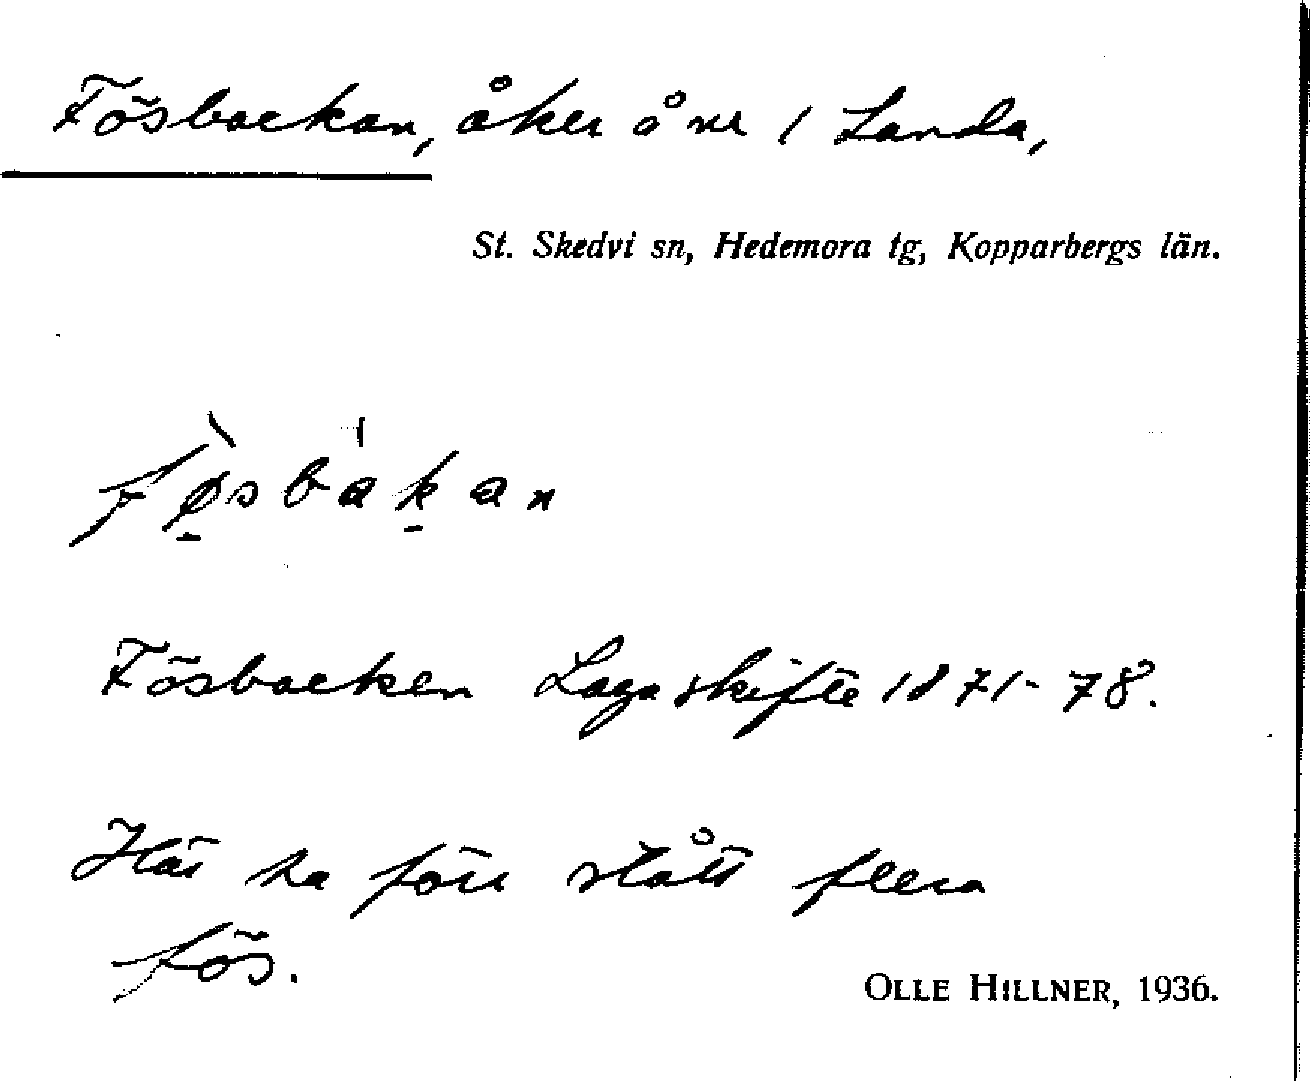 Fösbackan, åker å nr 1 Landa,
St. Skedvi sn, Hedemora tg, Kopparbergs län.
fø̠̀sba̍k̠an
Fösbacken Laga skifte 1871-78.
Här ha förr stått flera
fös.
OLLE HILLNER, 1936.